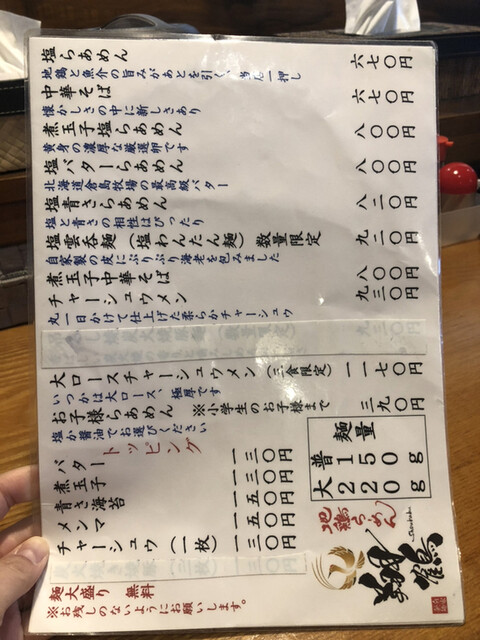 塩らあめん 六七〇円
地鶏と魚介の旨みがあとを引く、当店一押し
中華そば 六七〇円
懐かしさの中に新しさあり
煮玉子塩らあめん 八〇〇円
黄身の濃厚な厳選卵です
塩バターらあめん 八〇〇円
北海道倉島牧場の最高級バター
塩青さらあめん 八二〇円
塩と青さの相性はぴったり
塩雲呑麺（塩わんたん麺）数量限定 九二〇円
自家製の皮にぷりぷり海老を包みました
煮玉子中華そば 八〇〇円
チャーシュウメン 九三〇円
丸一日かけて仕上げた柔らかチャーシュウ
大ロースチャーシュウメン（三食限定） 一一七〇円
いつかは大ロース、極厚です
お子様らあめん ※小学生のお子様まで 三九〇円
塩か醤油でお選びください
トッピング
バター 一三〇円
煮玉子 一三〇円
青さ海苔 一五〇円
メンマ 一五〇円
チャーシュウ（一枚） 一三〇円
麺量
普150g
大220g
地鶏らーめん
翔鶴
麺大盛り 無料
※お残しのないようにお願いします。